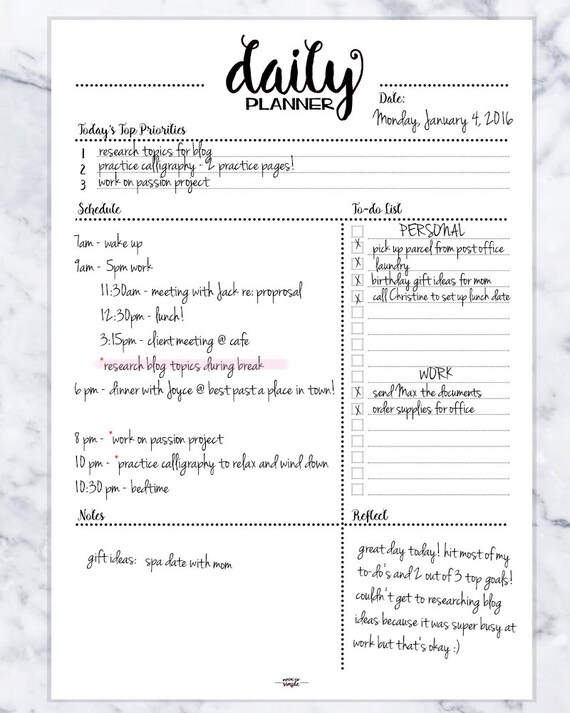 daily
PLANNER
Date:
Monday, January 4, 2016
Today's Top Priorities
1 research topics for blog
2 practice calligraphy - 2 practice pages!
3 work on passion project
Schedule
7am - wake up
9am - 5pm work
11:30am - meeting with Jack re: proprosal
12:30pm - lunch!
3:15pm - client meeting @ cafe
*research blog topics during break
6 pm - dinner with Joyce @ best past a place in town!
8 pm - *work on passion project
10 pm - *practice calligraphy to relax and wind down
10:30 pm - bedtime
To-do List
PERSONAL
x pick up parcel from post office
x laundry
x birthday gift ideas for mom
x call Christine to set up lunch date
WORK
x send Max the documents
x order supplies for office
Notes
gift ideas: spa date with mom
Reflect
great day today! hit most of my
to-do's and 2 out of 3 top goals!
couldn't get to researching blog
ideas because it was super busy at
work but that's okay :)
simple